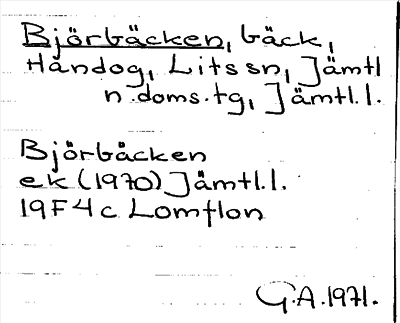 Björbäcken, bäck,
Handog, Lits sn, Jämtl
n.doms.tg, Jämtl.l.
Björbäcken
ek (1970) Jämtl.l.
19F4c Lomflon
G.A.1971.